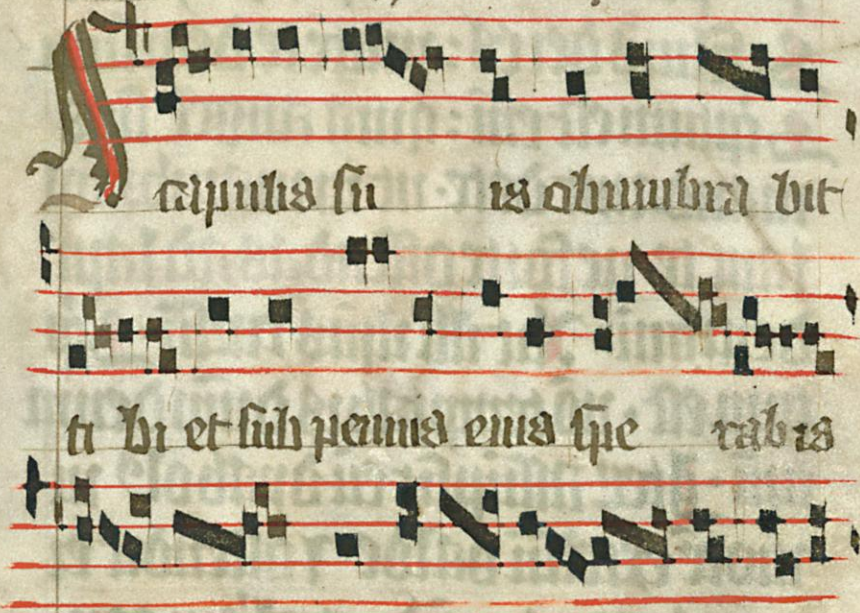 Scapulis su is obumbra bit
ti bi et sub pennis eius spe rabis